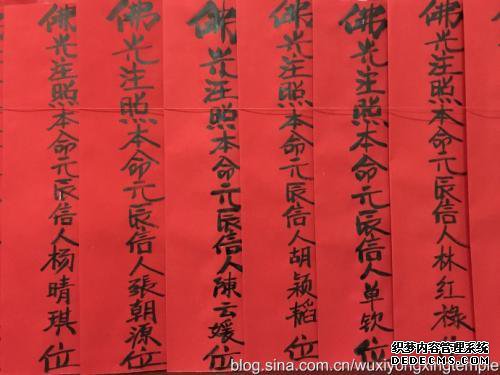 佛光注照本命元辰信人杨晴琪位
佛光注照本命元辰信人張朝源位
佛光注照本命元辰信人陳云媛位
佛光注照本命元辰信人胡颖韬位
佛光注照本命元辰信人单钦位
佛光注照本命元辰信人林红禄
织梦内容管理系统
DEDECMS.COM
blog.sina.com.cn/wuxiyongxingtemple